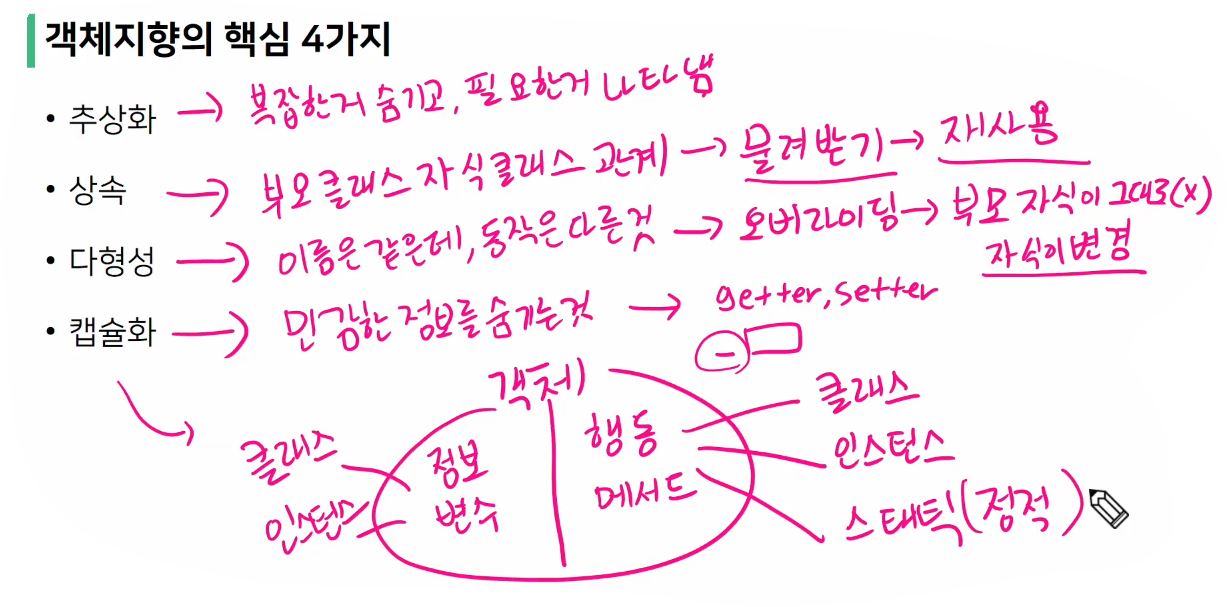 객체지향의 핵심 4가지
• 추상화 → 복잡한거 숨기고, 필요한거 나타냄
• 상속 → 부모클래스 자식클래스 관계 → 물려받기 → 재사용
• 다형성 → 이름은 같은데, 동작은 다른것 → 오버라이딩 → 부모 자식이 그대로(x)
자식이 변경
• 캡슐화 → 민감한 정보를 숨기는것 → getter, setter
-
객체
클래스 정보 행동 클래스
인스턴스 변수 메서드 인스턴스
스태틱(정적)